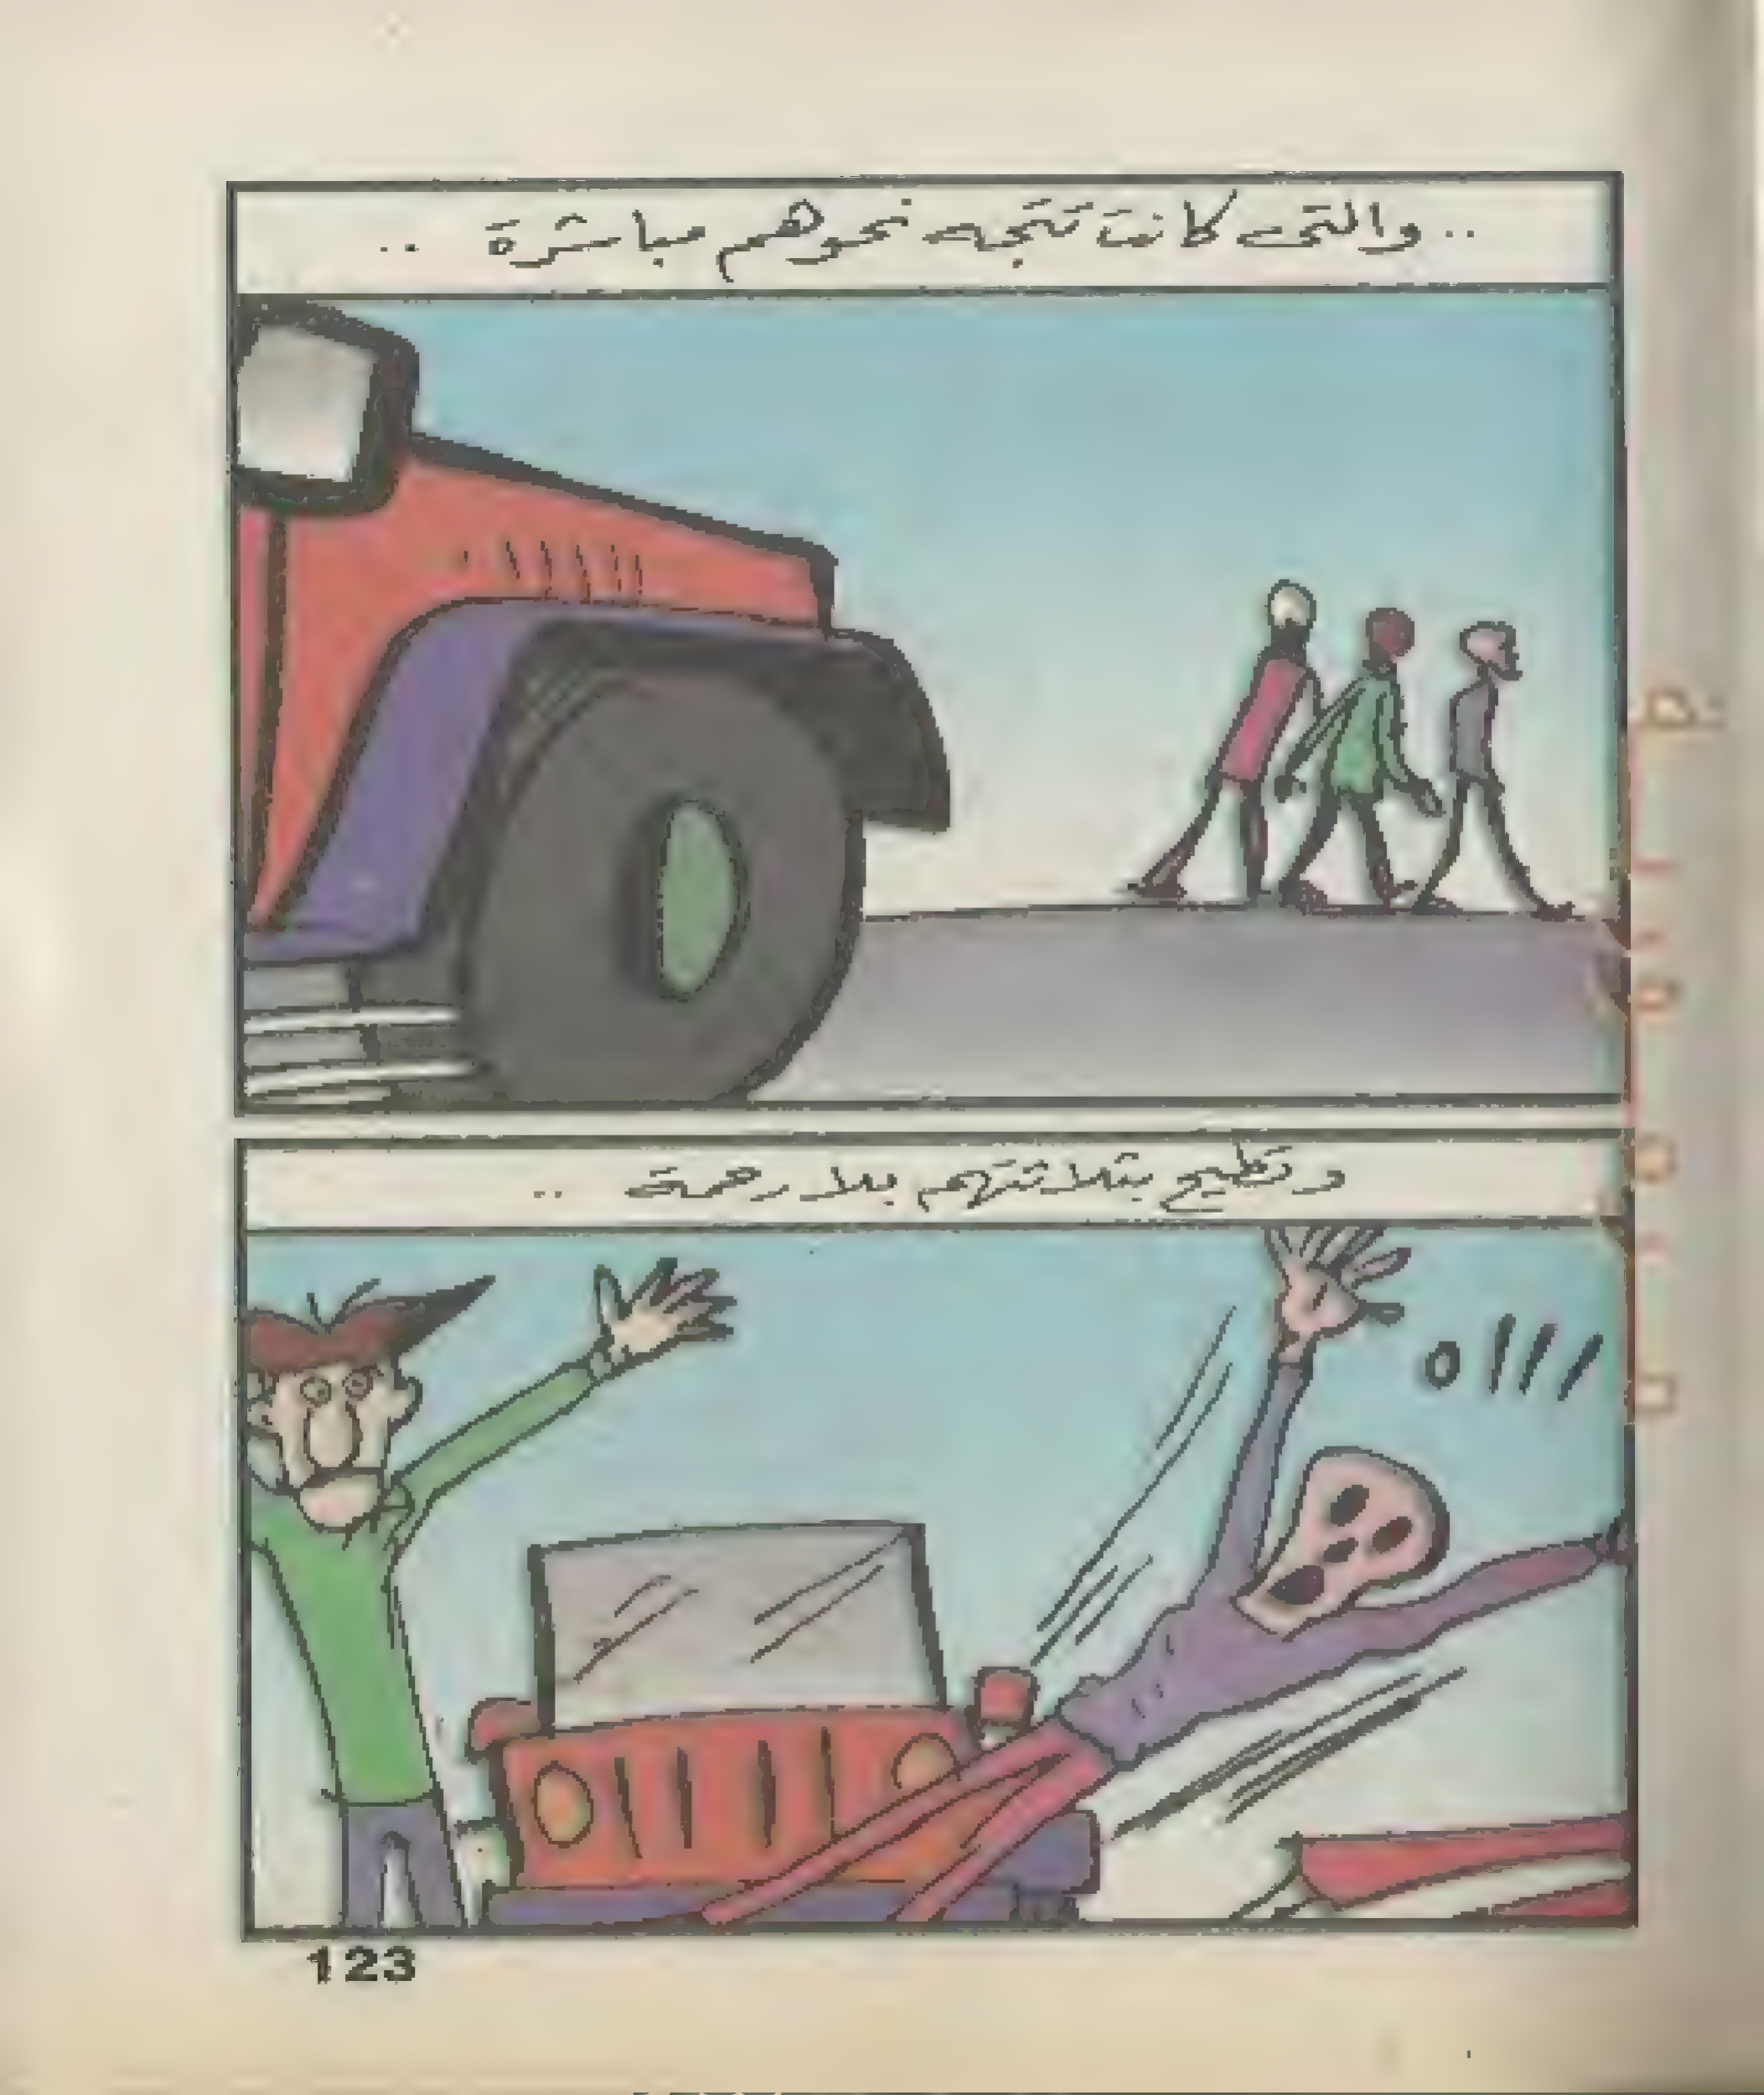 .. والتى كانت تتجه نحوهم مباشرة ..
وتطيح بثلاثتهم بلا رحمة ..
ااااه
123